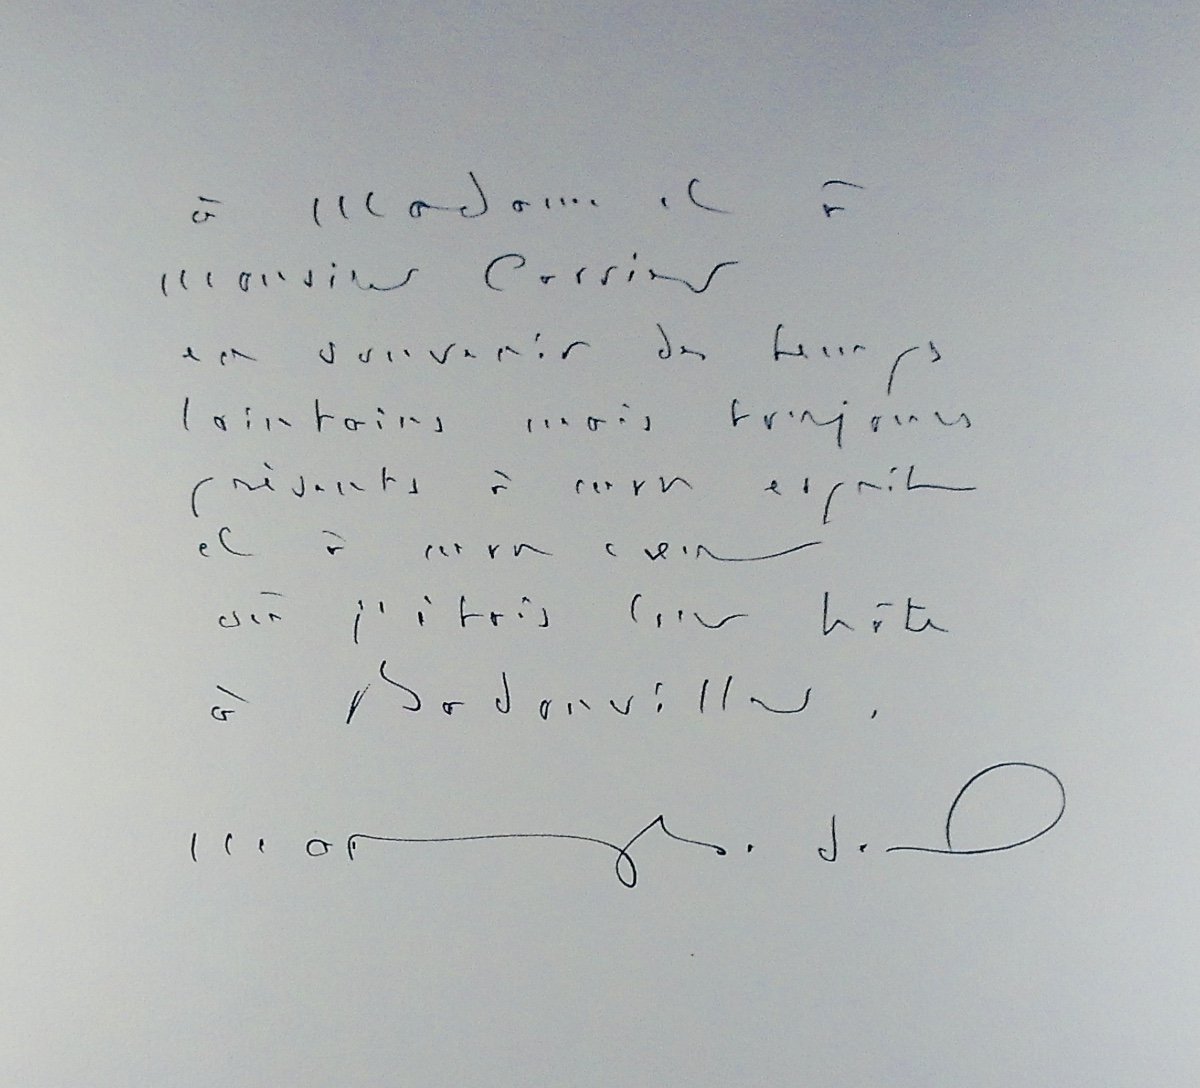 à Madame et à
Monsieur
en souvenir des temps
lointains mais toujours
présents à mon esprit
et à mon coeur
où j'étais leur hôte
à Badonviller,